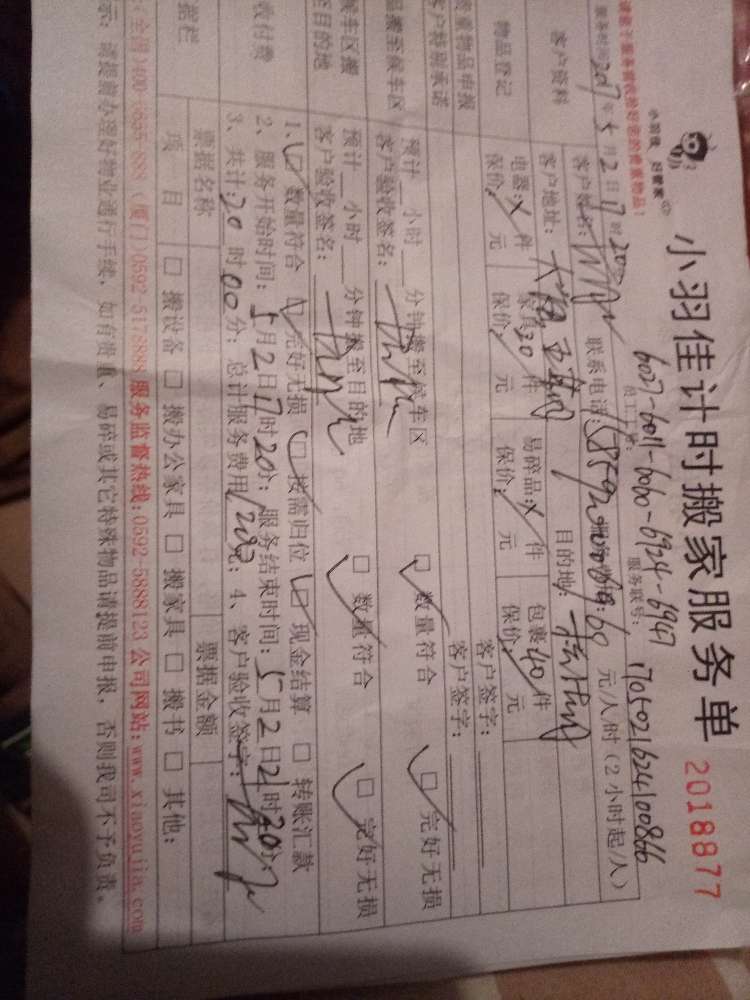 小羽佳 好管家
小羽佳计时搬家服务单 2018877
员工工号: 6027-6011-6060-6924-6967 服务联号: 170502162410086
服务时间: 2017年5月2日17时20
客户资料 客户姓名: 联系电话: 60元/人/时(2小时起/人)
客户地址: 目的地:
物品登记 电器: 件 家具20件 易碎品: 件 包裹40件
保价: 元 保价: 元 保价: 元 保价: 元
贵重物品申报 客户签字:
客户特别承诺 客户签字:
品搬至候车区 预计 小时 分钟搬至候车区 □数量符合 □完好无损
客户验收签名:
候车区搬至目的地 预计 小时 分钟搬至目的地 □数量符合 □完好无损
客户验收签名:
收付费 1、□数量符合 □完好无损 □按需归位 □现金结算 □转账汇款
2、服务开始时间:5月2日17时20分;服务结束时间:5月2日21时20分;
3、共计:20时00分;总计服务费用1200元;4、客户验收签字:
票据栏 票据名称 票据金额
项目 □搬设备 □搬办公家具 □搬家具 □搬书 □其他:
(厦门)0592-5178888 服务监督热线:0592-5888123 公司网站:www.xiaoyujia.com
示:请提前办理好物业通行手续,如有贵重、易碎或其它特殊物品请提前申报,否则我司不予负责。